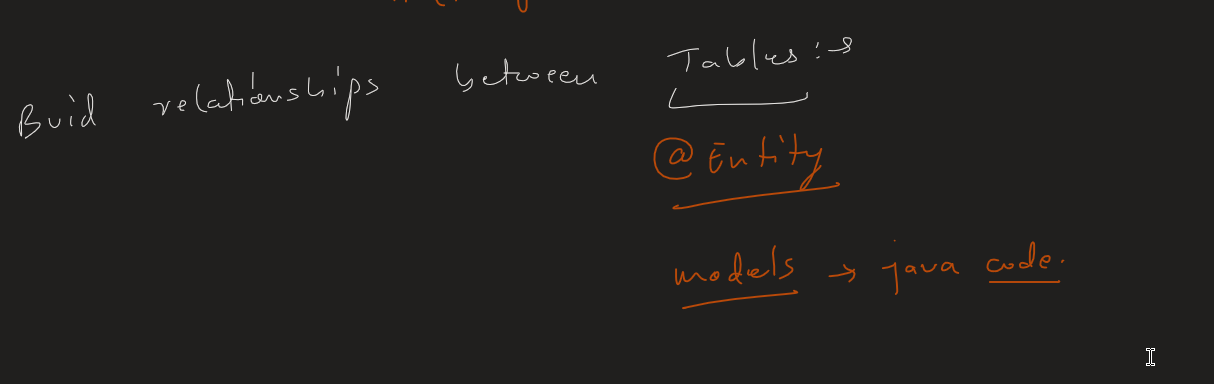 Buid relationships between Tables :-
@Entity
models → java code.